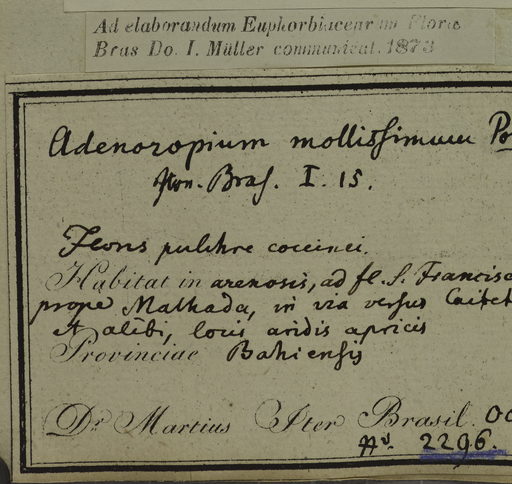 Ad elaborandum Euphorbiacearum Florae
Bras Do. I. Müller communicat. 1873
Adenoropium mollissimum Po
Icon. Bras. I. 15.
Flores pulchre coccinei.
Habitat in arenosis, ad fl. S. Francisc
prope Malhada, in via versus Caitet
et alibi, locis aridis apricis
Provinciae Bahiensis
Dr. Martius Iter Brasil. Oc
2296.